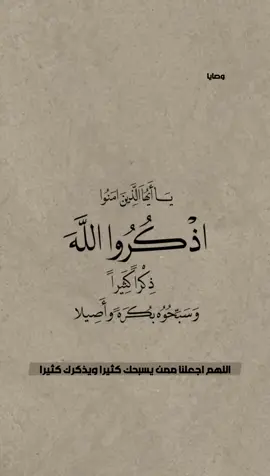 وصايا
يَا أَيُّهَا الَّذِينَ امَنُوا
اذْكُرُوا اللَّهَ
ذِكْرًا كَثِيرًا
وَسَبِّحُوُه بُكْرَةً وَأَصِيلا
اللهم اجعلنا ممن يسبحك كثيرا ويذكرك كثيرا